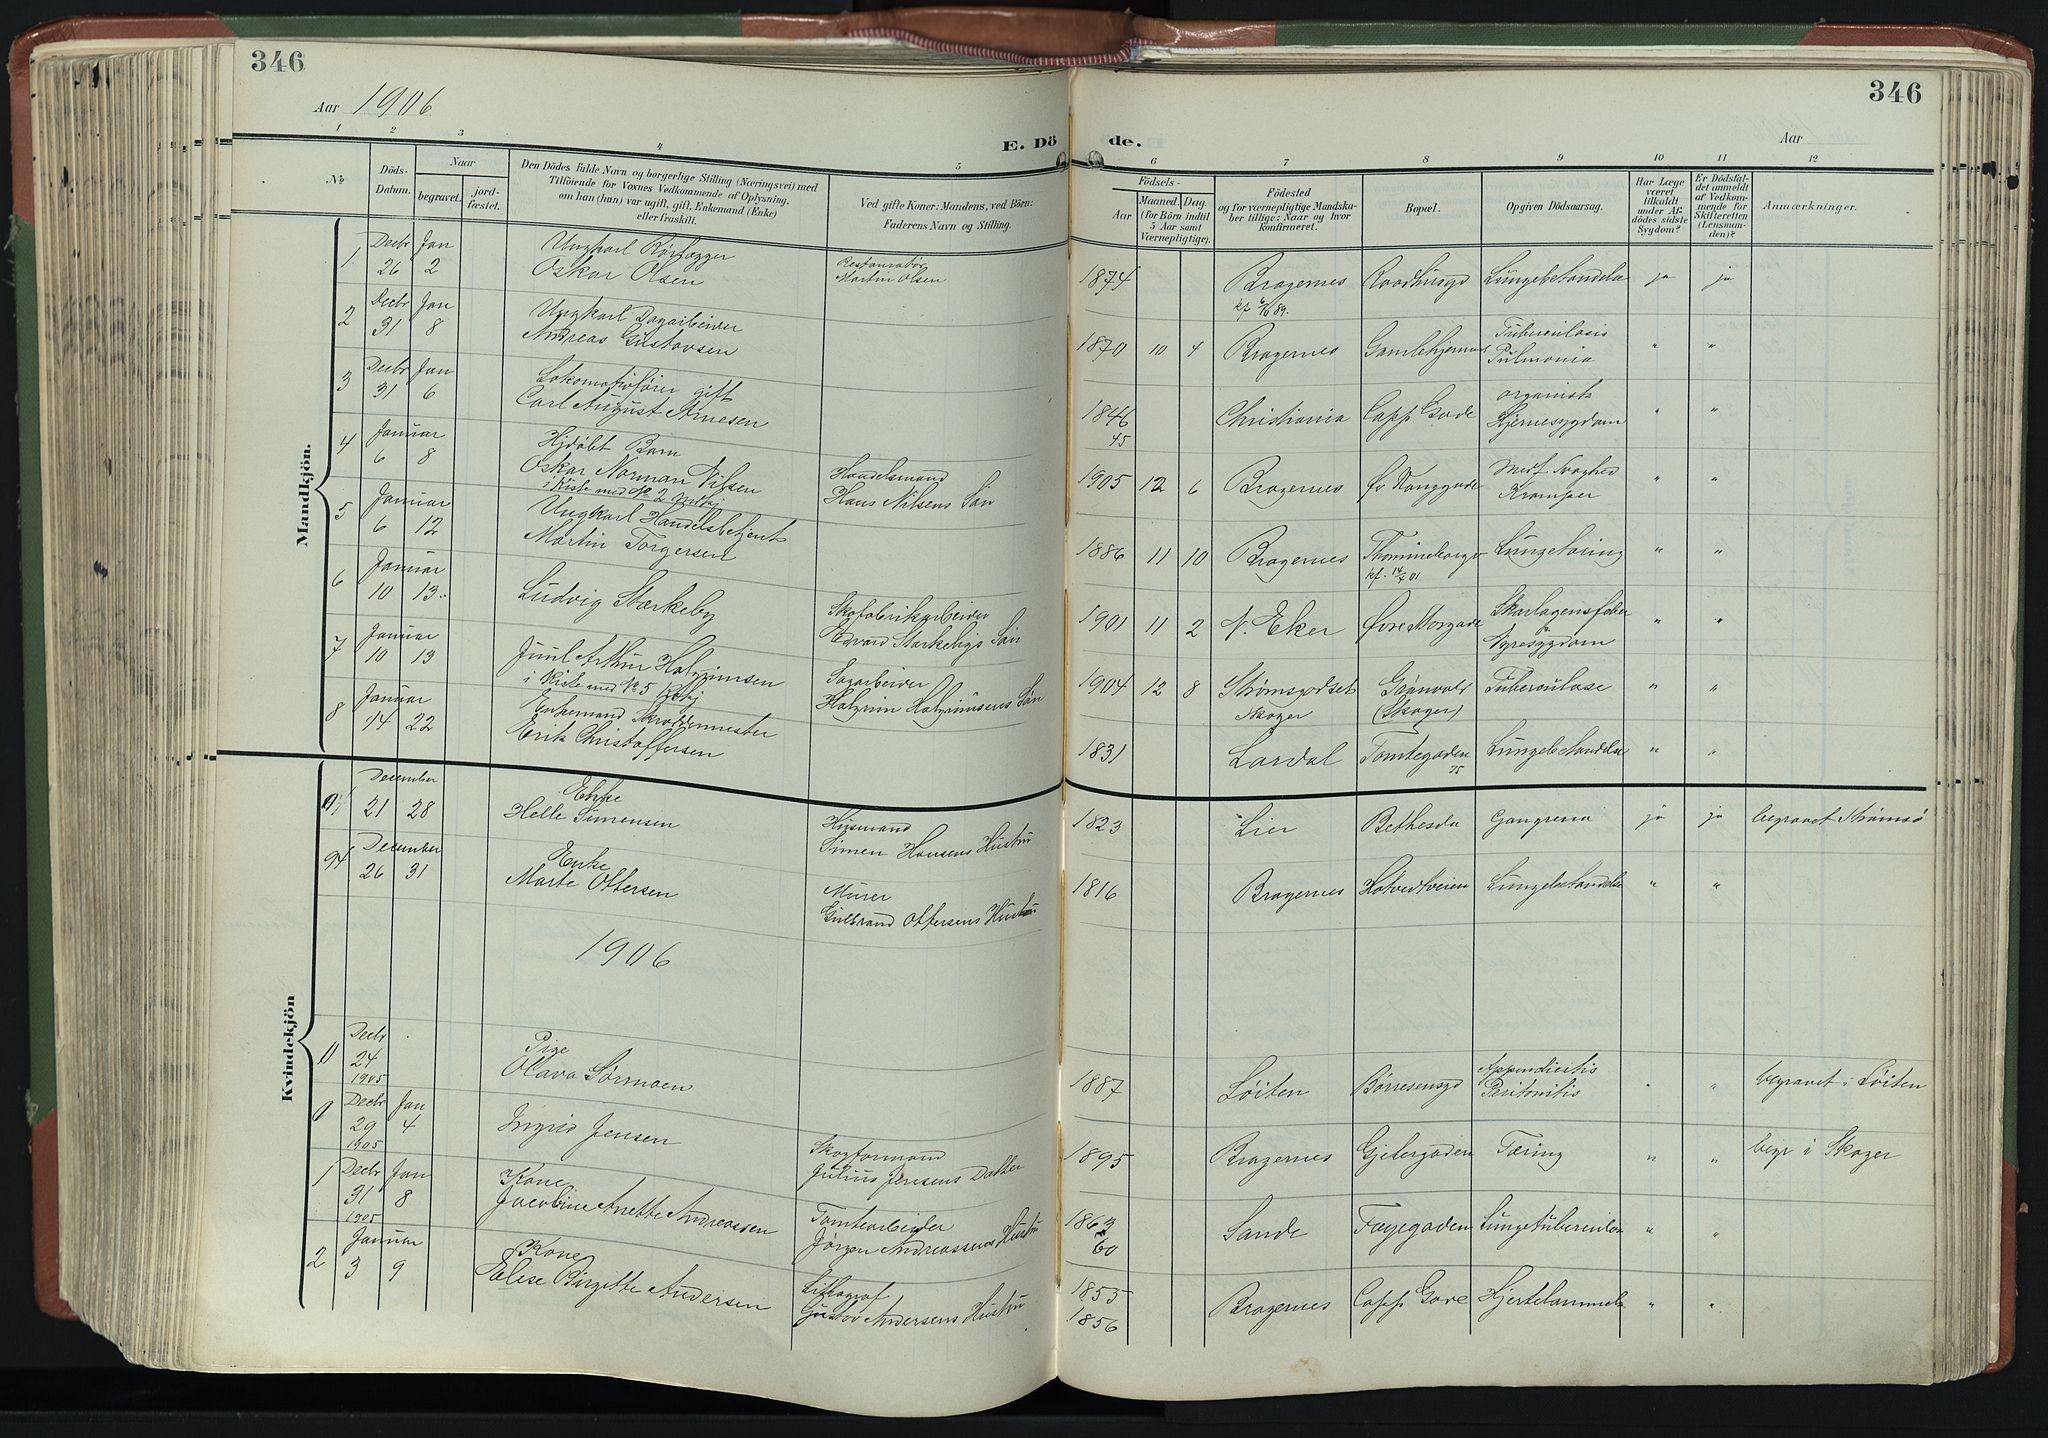 346
346
Aar 1906
Aar
E. Dö
de.
1 2 3 4 5 6 7 8 9 10 11 12
No
Döds-Datum.
Naar
begravet.
jord-fæstet.
Den Dödes fulde Navn og borgerlige Stilling (Næringsvei) med
Tilföiende for Voxnes Vedkommende af Oplysning,
om han (hun) var ugift, gift, Enkemand (Enke)
eller fraskilt.
Ved gifte Koner: Mandens, ved Börn:
Faderens Navn og Stilling.
Födsels-
Aar
Maaned. Dag.
(for Börn indtil
5 Aar samt
Værnepligtige).
Födested
og for værnepligtige Mandska-
ber tillige: Naar og hvor
konfirmeret.
Bopæl.
Opgiven Dödsaarsag.
Har Læge
været
tilkaldt
under Af-
dödes sidste
Sygdom?
Er Dödsfal-
det anmeldt
af Vedkom-
mende for
Skifteretten
(Lensman-
den)?
Anmærkninger.
Mandkjön.
1 Decbr 26 Jan 2
Ungkarl Rørlægger
Oskar Olsen
Martin Olsen
1874 Bragernes Raadhusgd Lungebetændelse ja ja
kf 89.
2 Decbr 31 Jan 8
Ungkarl Dagarbeider
Andreas Gustavsen
1870 10 4 Bragernes Tuberculosis " "
Pulmonia
3 Decbr 31 Jan 6
Lokomotivfører gift
Carl August Arnesen
1846 Christiania Capp. Gade organisk " "
45 Hjernesygdom
4 Januar 6 8
Hjdøbt Barn
Oskar Norman Nilsen
i Kiste med No 2
Handelsmand
Hans Nilsens Søn
1905 12 6 Bragernes Øv Konggade Medf Svaghed " "
Kramper
5 Januar 6 12
Ungkarl Handelsbetjent
Martin Torgersen
1886 11 10 Bragernes Lungetæring " "
kf. 14/4 01
6 Januar 10 13
Ludvig Stærkeby
Skofabrikarbeider
Edvard Stærkebys Søn
1901 11 2 N. Eker Øvre Storgade Skarlagensfeber " "
Nyresygdom
7 Januar 10 13
Juul Arthur Halgrimsen
i Kiste med No 5
Sagarbeider
Halgrim Halgrimsens Søn
1904 12 8 Strømsgodset Grønvold Tuberculose " "
Skoger (Skoger)
8 Januar 14 22
Enkemand Skræddermester
Erik Christoffersen
1831 Lardal Tomtegaden Lungebetændelse " "
75
Kvindekjön
December 21 28
Enke
Helle Simensen
Husmand
Simen Hansens Hustru
1823 Lier Bethesda Gangrena ja ja begravet Strømsø
94 December 26 31
Enke
Marte Ottersen
Murer
Gulbrand Ottersens Hustru
1816 Bragernes Hotvedtveien Lungebetændelse " "
1906
0 Decbr 24 1905
Pige
Olava Sørmoen
1887 Løiten Børresensgd Appendicitis " " begravet i Løiten
Peritonitis
0 Decbr 29 1905 Jan 4
Ingrid Jensen
Skogformand
Julius Jensens Datter
1895 Bragernes Gjetergaden Tæring " " begr i Skoger
1 Decbr 31 1905 Jan 8
Kone
Jacobine Anette Andreassen
Tomtearbeider
Jørgen Andreassens Hustru
1863 Sande Fayegaden Lungetuberculose " "
60
2 Januar 3 9
Kone
Elise Birgitte Andersen
Lithograf
Gustav Andersens Hustru
1853 Bragernes Capp Gade Hjertelammelse " "
1856